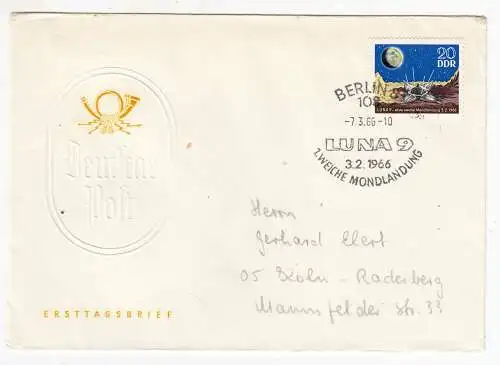 20
DDR
LUNA 9 - erste weiche Mondlandung 3.2.1966
BERLIN
108
-7.3.66-10
LUNA 9
3.2.1966
1.WEICHE MONDLANDUNG
Deutsche
Post
Herrn
Gerhard Elert
05 Köln - Raderberg
Mannsfelder Str. 33
ERSTTAGSBRIEF